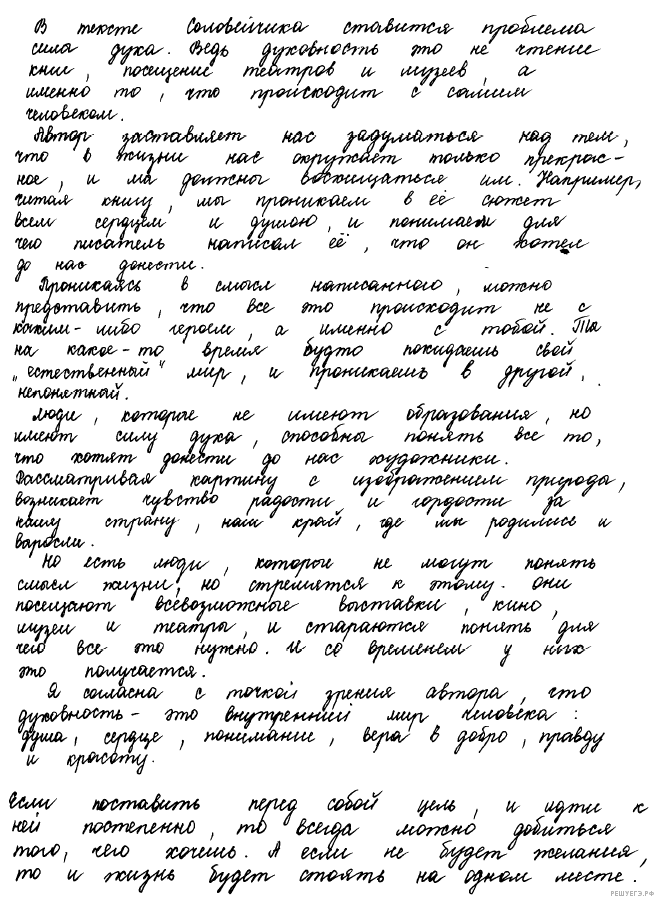 В тексте Соловейчика ставится проблема
сила духа. Ведь духовность это не чтение
книг, посещение театров и музеев, а
именно то, что происходит с самим
человеком.
Автор заставляет нас задуматься над тем,
что в жизни нас окружает только прекрас-
ное, и мы должны восхищаться им. Например,
читая книгу, мы проникаем в её сюжет
всем сердцем и душою, и понимаем для
чего писатель написал её, что он хотел
до нас донести.
Проникаясь в смысл написанного, можно
представить, что все это происходит не с
каким-либо героем, а именно с тобой. Ты
на какое-то время будто покидаешь свой
"естественный" мир, и проникаешь в другой,
непонятный.
Люди, которые не имеют образования, но
имеют силу духа, способны понять все то,
что хотят донести до нас художники.
Рассматривая картину с изображением природы,
возникает чувство радости и гордости за
нашу страну, наш край, где мы родились и
выросли.
Но есть люди, которые не могут понять
смысл жизни, но стремятся к этому. Они
посещают всевозможные выставки, кино,
музеи и театры, и стараются понять для
чего все это нужно. И со временем у них
это получается.
Я согласна с точкой зрения автора, что
духовность - это внутренней мир человека:
душа, сердце, понимание, вера в добро, правду
и красоту.
Если поставить перед собой цель, и идти к
ней постепенно, то всегда можно добиться
того, чего хочешь. А если не будет желания,
то и жизнь будет стоять на одном месте.
РЕШУЕГЭ.РФ